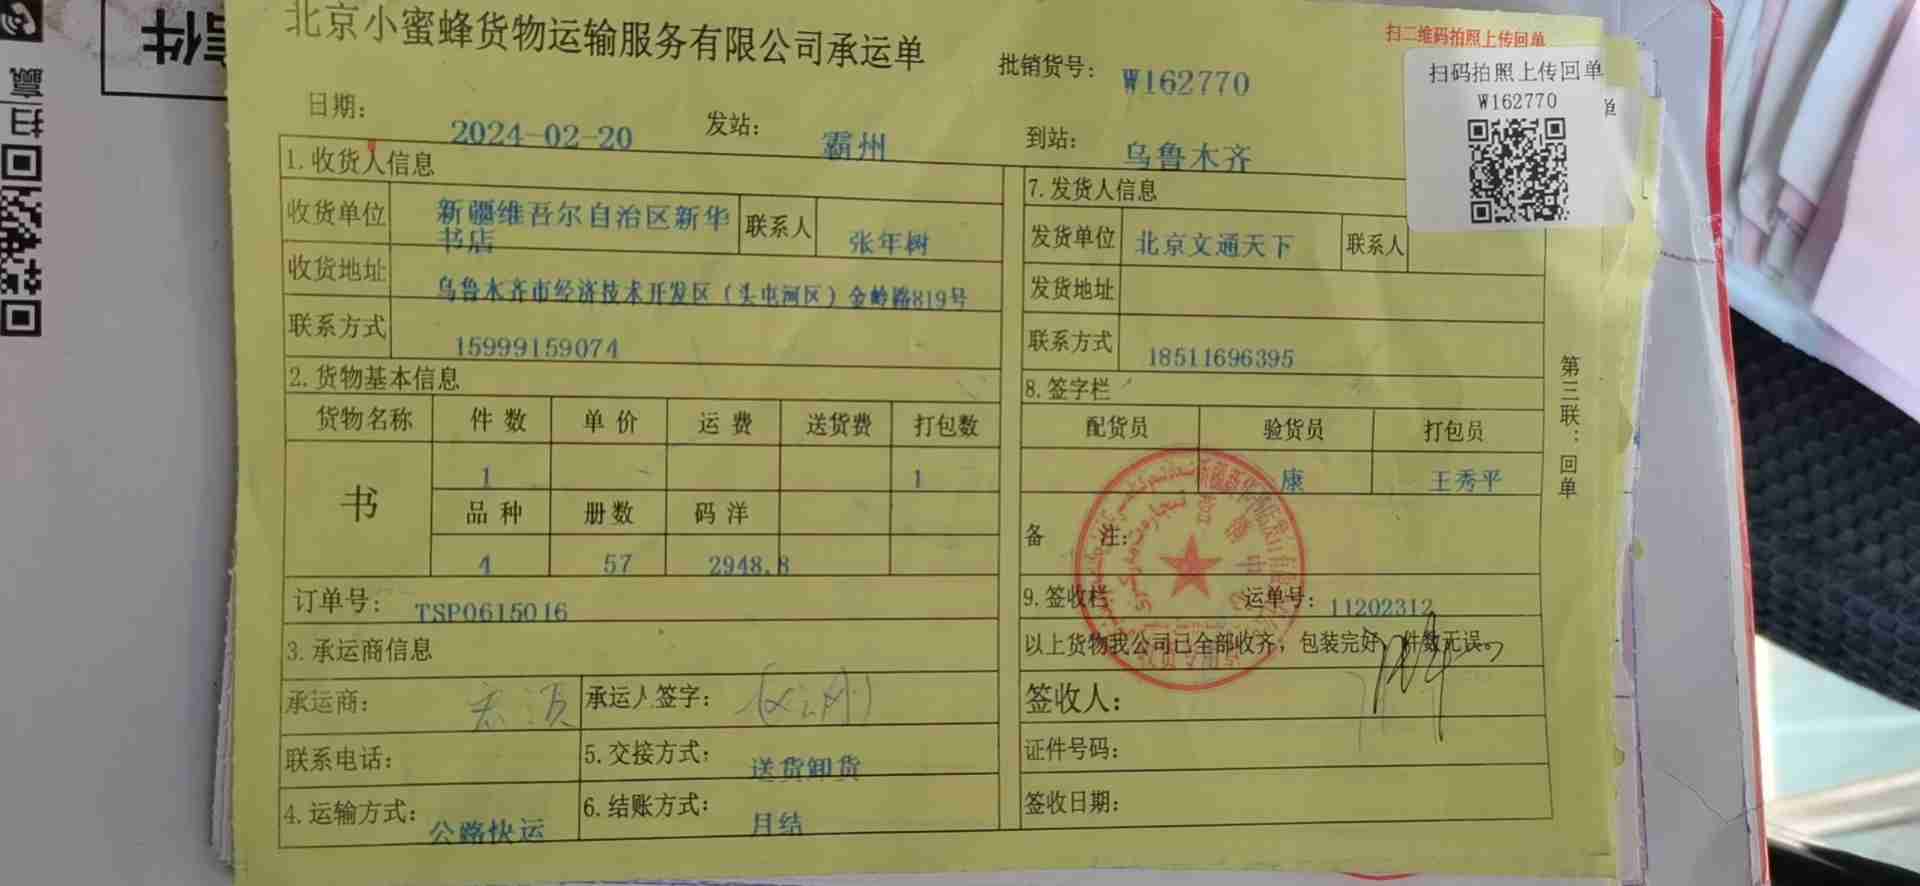 北京小蜜蜂货物运输服务有限公司承运单
批销货号: W162770
扫二维码拍照上传回单
扫码拍照上传回单
W162770
日期: 2024-02-20 发站: 霸州 到站: 乌鲁木齐
1.收货人信息
收货单位 新疆维吾尔自治区新华书店 联系人 张年树
收货地址 乌鲁木齐市经济技术开发区（头屯河区）金岭路819号
联系方式 15999159074
2.货物基本信息
货物名称 件数 单价 运费 送货费 打包数
书 1 1
品种 册数 码洋
4 57 2948.8
订单号: TSP0615016
3.承运商信息
承运商: 承运人签字:
联系电话: 5.交接方式: 送货卸货
4.运输方式: 公路快运 6.结账方式: 月结
7.发货人信息
发货单位 北京文通天下 联系人
发货地址
联系方式 18511696395
8.签字栏
配货员 验货员 打包员
康 王秀平
备 注:
9.签收栏 运单号: 11202312
以上货物我公司已全部收齐，包装完好，件数无误。
签收人:
证件号码:
签收日期:
第三联：回单